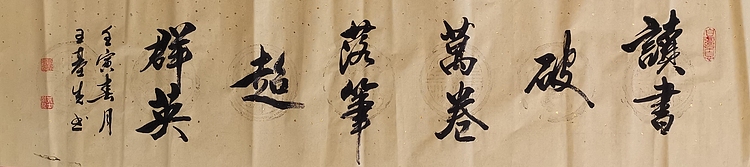 讀書
破
萬卷
落筆
超
群英
壬寅春月
王基先书